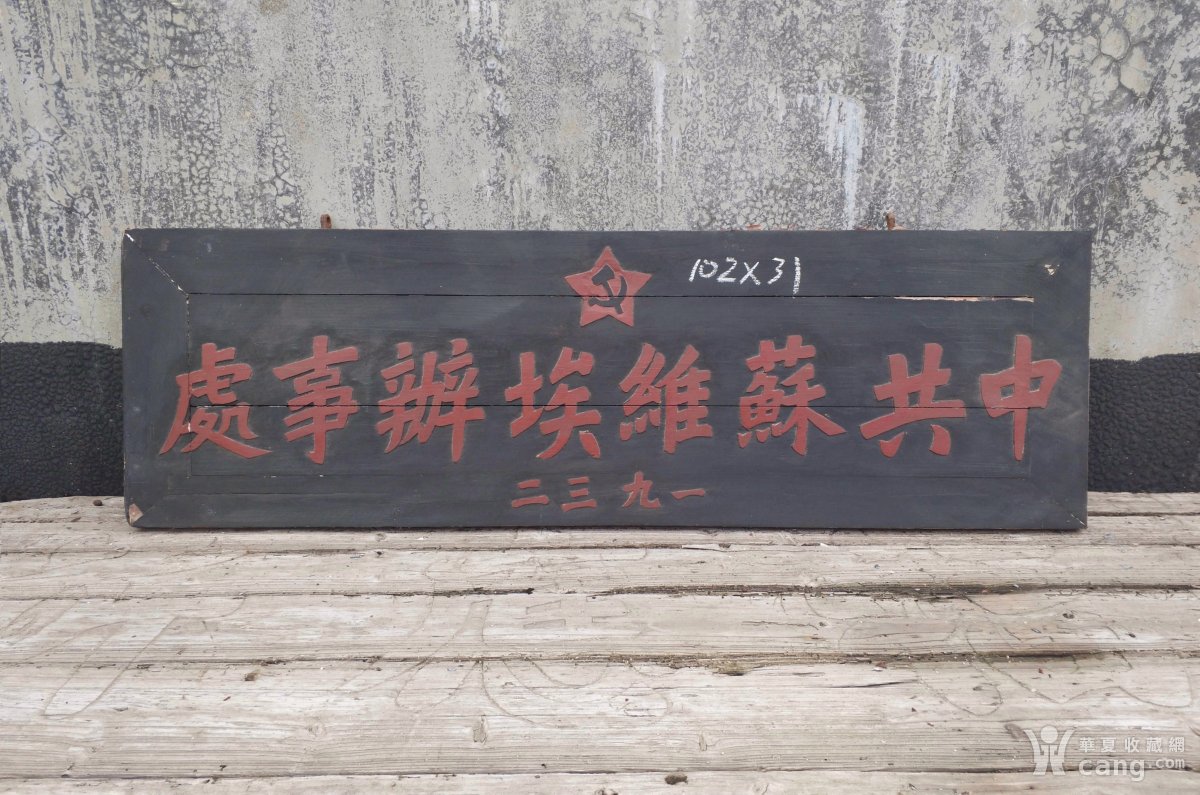 102X31
中共蘇維埃辦事處
一九三二
華夏收藏網
cang.com